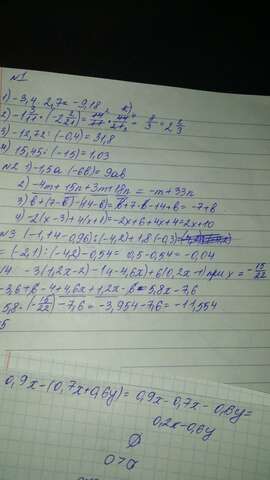 №1
1) -3,4 · 2,7 = -9,18
2) -1 3/11 · (-2 2/21) = 14/11 · 44/21 = 8/3 = 2 2/3
3) -12,72 : (-0,4) = 31,8
4) 15,45 : (-15) = 1,03
№2 1) -1,5a · (-6b) = 9ab
2) -4m + 15n + 3m + 18n = -m + 33n
3) b + (7-b) - (14-b) = b + 7 - b - 14 + b = -7 + b
4) -2(x-3) + 4(x+1) = -2x + 6 + 4x + 4 = 2x + 10
№3 (-1,14 - 0,96) : (-4,2) + 1,8 · (-0,3)
= (-2,1) : (-4,2) - 0,54 = 0,5 - 0,54 = -0,04
4 -3(1,2x-2) - (4-4,6x) + 6(0,2x-1) при x = -15/22
-3,6 + 6 - 4 + 4,6x + 1,2x - 6 = 5,8x - 7,6
5,8 · (-15/22) - 7,6 = -3,954 - 7,6 = -11,554
5
0,9x - (0,7x + 0,6y) = 0,9x - 0,7x - 0,6y =
0,2x - 0,6y